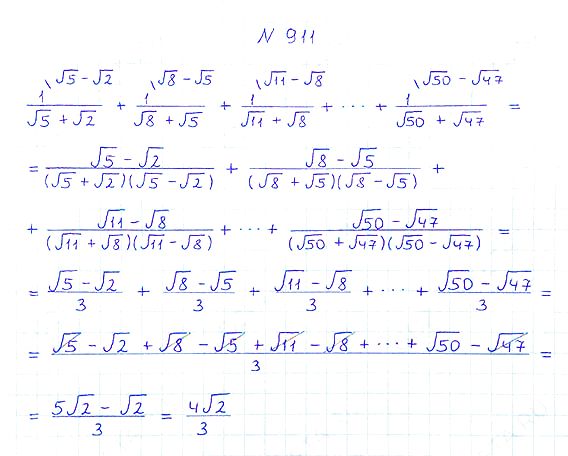 N 911
1\√5 - √2 / (√5 + √2) + 1\√8 - √5 / (√8 + √5) + 1\√11 - √8 / (√11 + √8) + ... + 1\√50 - √47 / (√50 + √47) =
= (√5 - √2) / ((√5 + √2)(√5 - √2)) + (√8 - √5) / ((√8 + √5)(√8 - √5)) +
+ (√11 - √8) / ((√11 + √8)(√11 - √8)) + ... + (√50 - √47) / ((√50 + √47)(√50 - √47)) =
= (√5 - √2) / 3 + (√8 - √5) / 3 + (√11 - √8) / 3 + ... + (√50 - √47) / 3 =
= (√5 - √2 + √8 - √5 + √11 - √8 + ... + √50 - √47) / 3 =
= (5√2 - √2) / 3 = 4√2 / 3